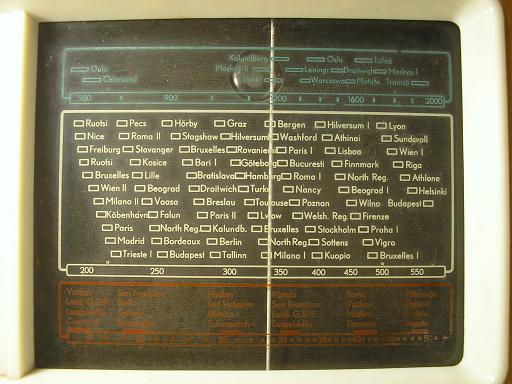 Kalundborg Oslo Luleå
Oulu Moskva II Leningr. Droitwich Moskva I
Östersund Lahti Warszawa Motala Tromsö
700 900 1200 1600 2000
Ruotsi Pecs Hörby Graz Bergen Hilversum I Lyon
Nice Roma II Stagshaw Hilversum Washford Athinai Sundsvall
Freiburg Stavanger Bruxelles Rovaniemi Paris I Lisboa Wien I
Ruotsi Kosice Bari I Göteborg Bucuresti Finnmark Riga
Bruxelles Lille Bratislava Hamburg Roma I North Reg. Athlone
Wien II Beograd Droitwich Turku Nancy Beograd I Helsinki
Milano II Vaasa Breslau Toulouse Poznan Wilno Budapest
Köbenhavn Falun Paris II Lwow Welsh. Reg. Firenze
Paris North Reg. Kalundb. Bruxelles Stockholm Praha I
Madrid Bordeaux Berlin North Reg. Sottens Vigra
Trieste I Budapest Tallinn Milano I Kuopio Bruxelles I
200 250 300 350 400 450 500 550
San Francisco Motala
Land. G.S.W. San Francisco
Land. G.S.W.
Leopoldville
50